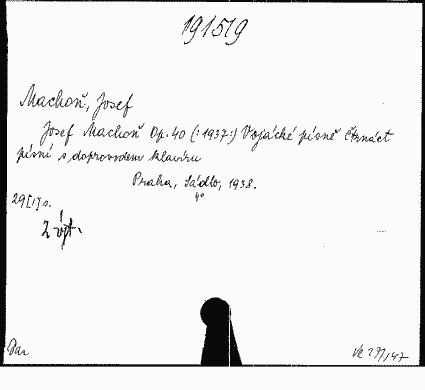 191519
Machoň, Josef
Josef Machoň Op. 40 (:1937:) Vojácké písně Čtrnáct
písní s doprovodem klavíru
Praha, Sádlo, 1938.
4°
29[1] s.
2 výt.
Dar